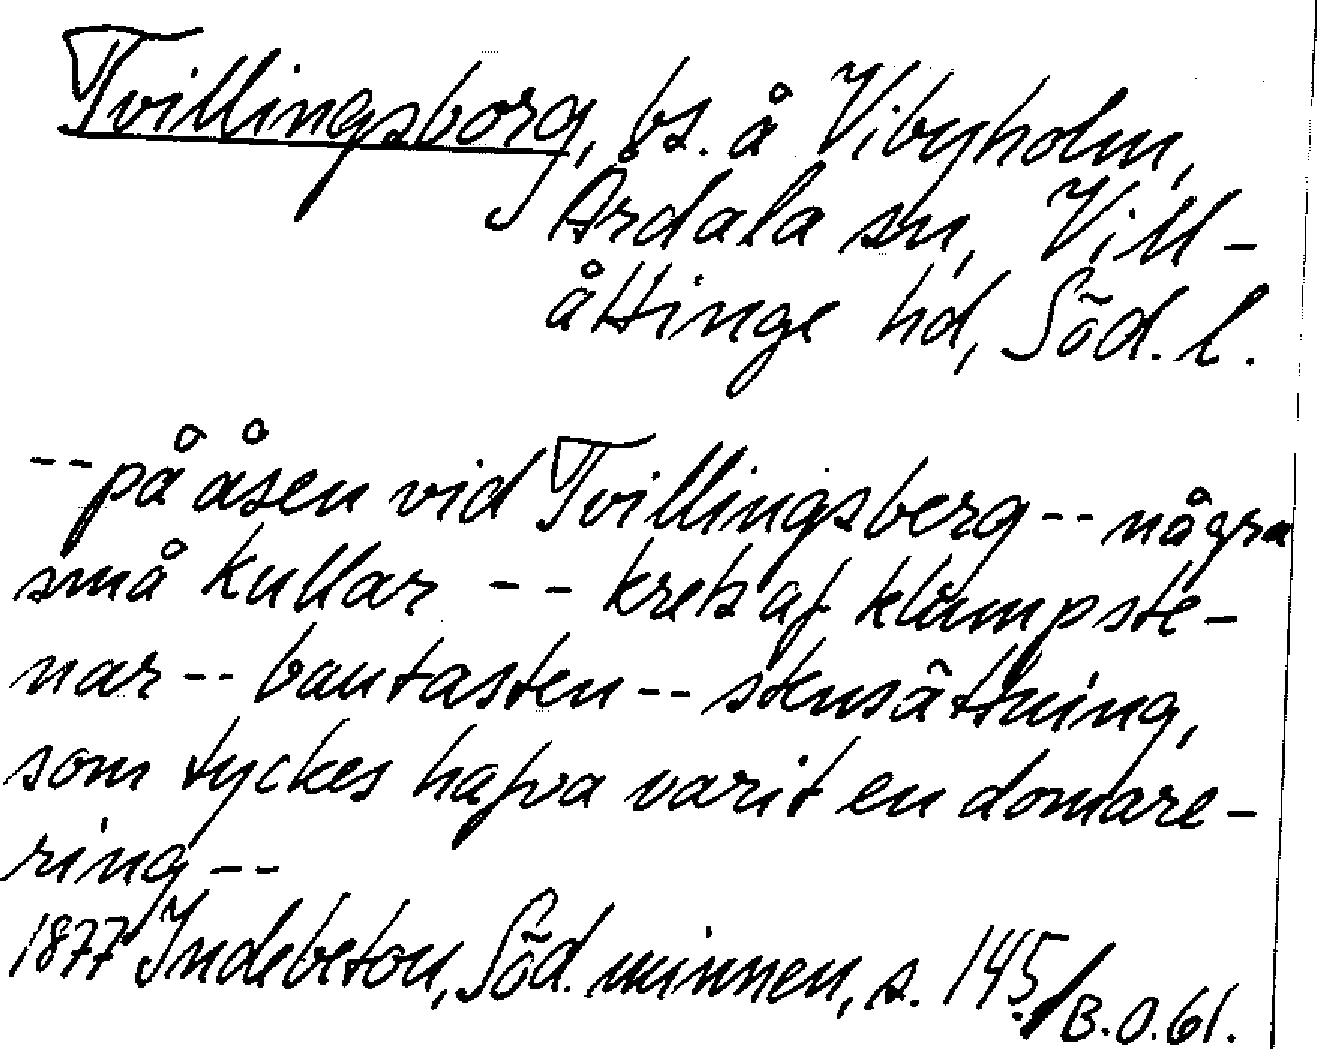 Tvillingsborg, bs. å Vibyholm,
Årdala sn, Vill-
åttinge hd, Söd. l.
-- på åsen vid Tvillingsberg -- några
små kullar -- krets af klumpste-
nar -- bautasten -- stensättning,
som tyckes hafva varit en domare-
ring --
1877 Indebetou, Söd. minnen, s. 145 / B.O. 61.